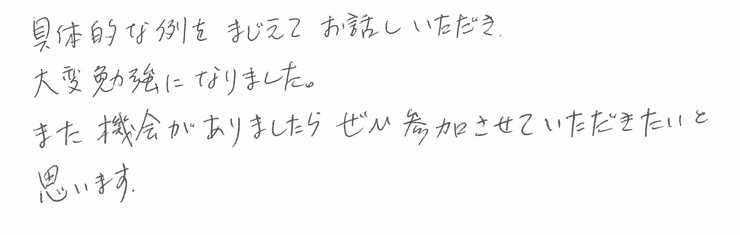 具体的な例をまじえてお話しいただき.
大変勉強になりました。
また機会がありましたらぜひ参加させていただきたいと
思います.